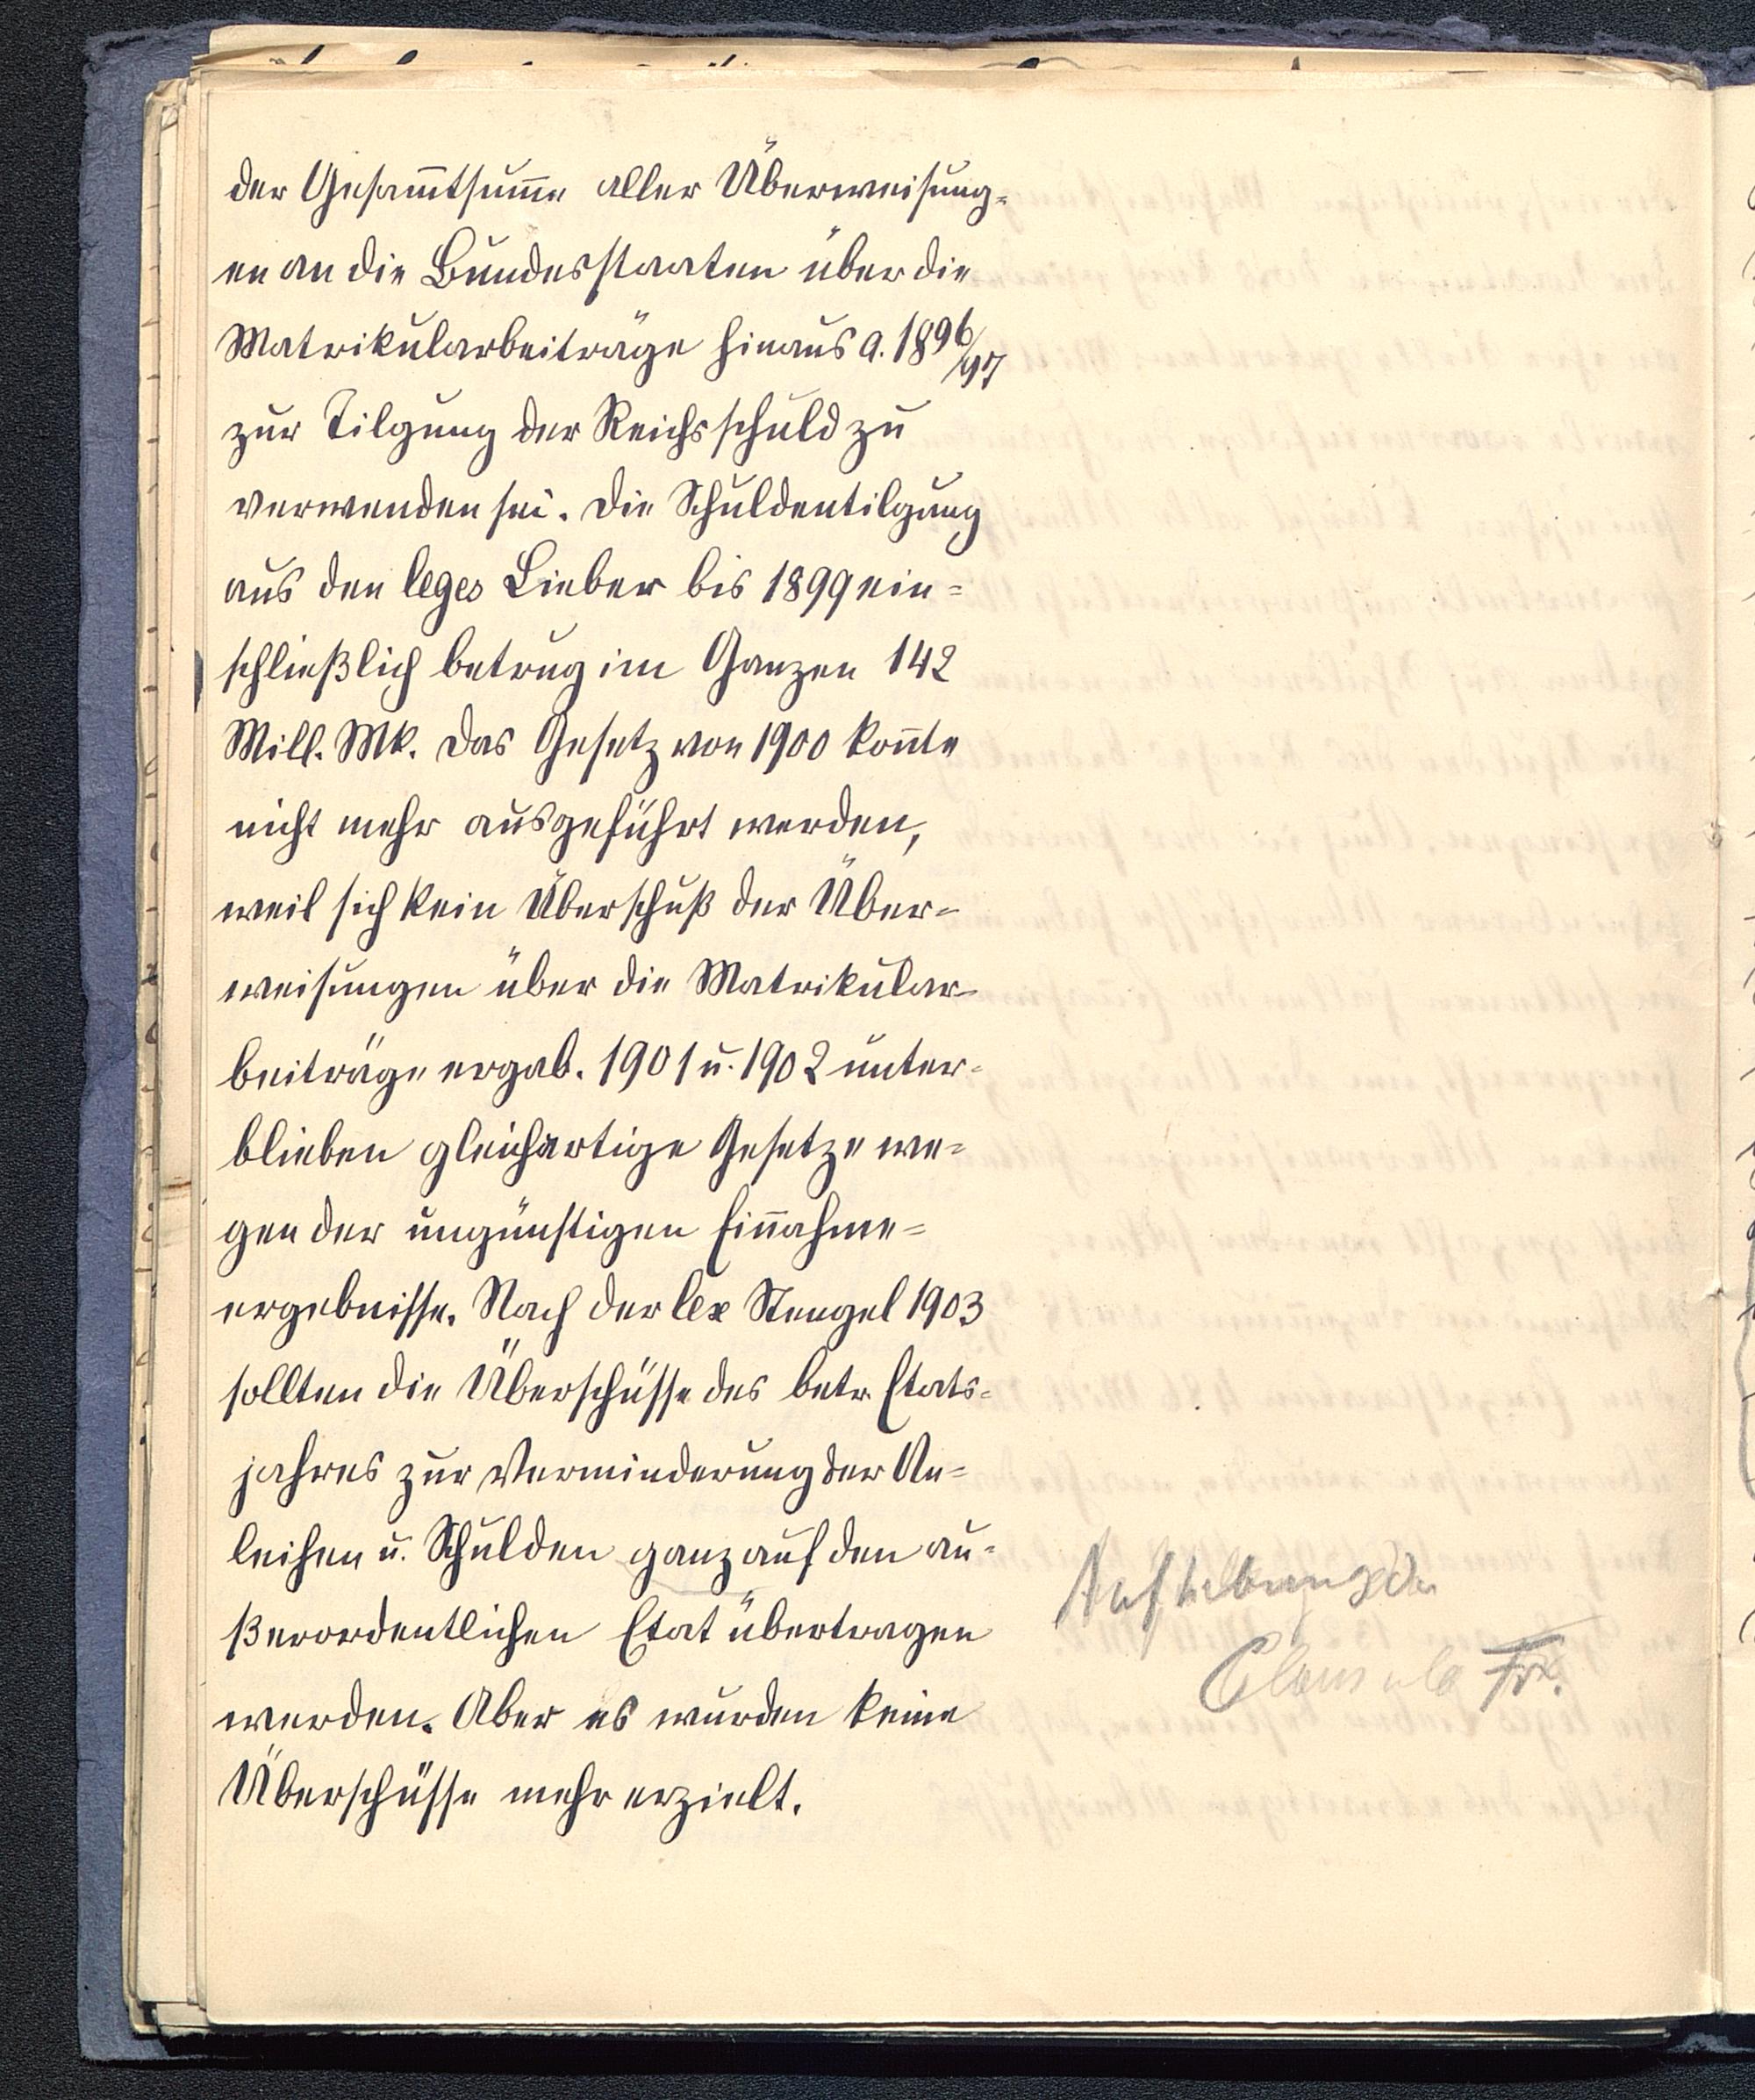 der Gesam̄tsum̄e aller Überweisung-
en an die Bundesstaaten über die
Matrikularbeiträge hinaus a. 1896/97
zur Tilgung der Reichsschuld zu
verwenden sei. Die Schuldentilgung
aus den leges Lieber bis 1899 ein=
schließlich betrug im Ganzen 142
Mill. Mk. Das Gesetz von 1900 kon̄te
nicht mehr ausgeführt werden,
weil sich kein Überschuß der Über-
weisungen über die Matrikular-
beiträge ergab. 1901 u. 1902 unter-
blieben gleichartige Gesetze we=
gen der ungünstigen Ein̄ahme=
ergebnisse. Nach der lex Stengel 1903
sollten die Überschüsse des betr. Etats=
jahres zur Verminderung der An=
leihen u. Schulden ganz auf den au=
ßerordentlichen Etat übertragen
werden. Aber es wurden keine
Überschüsse mehr erzielt.
Aufhebung der
Clausula